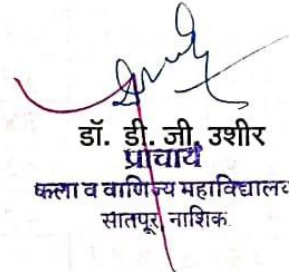 डॉ. डी. जी. उशीर
प्राचार्य
कला व वाणिज्य महाविद्यालय
सातपूर, नाशिक.